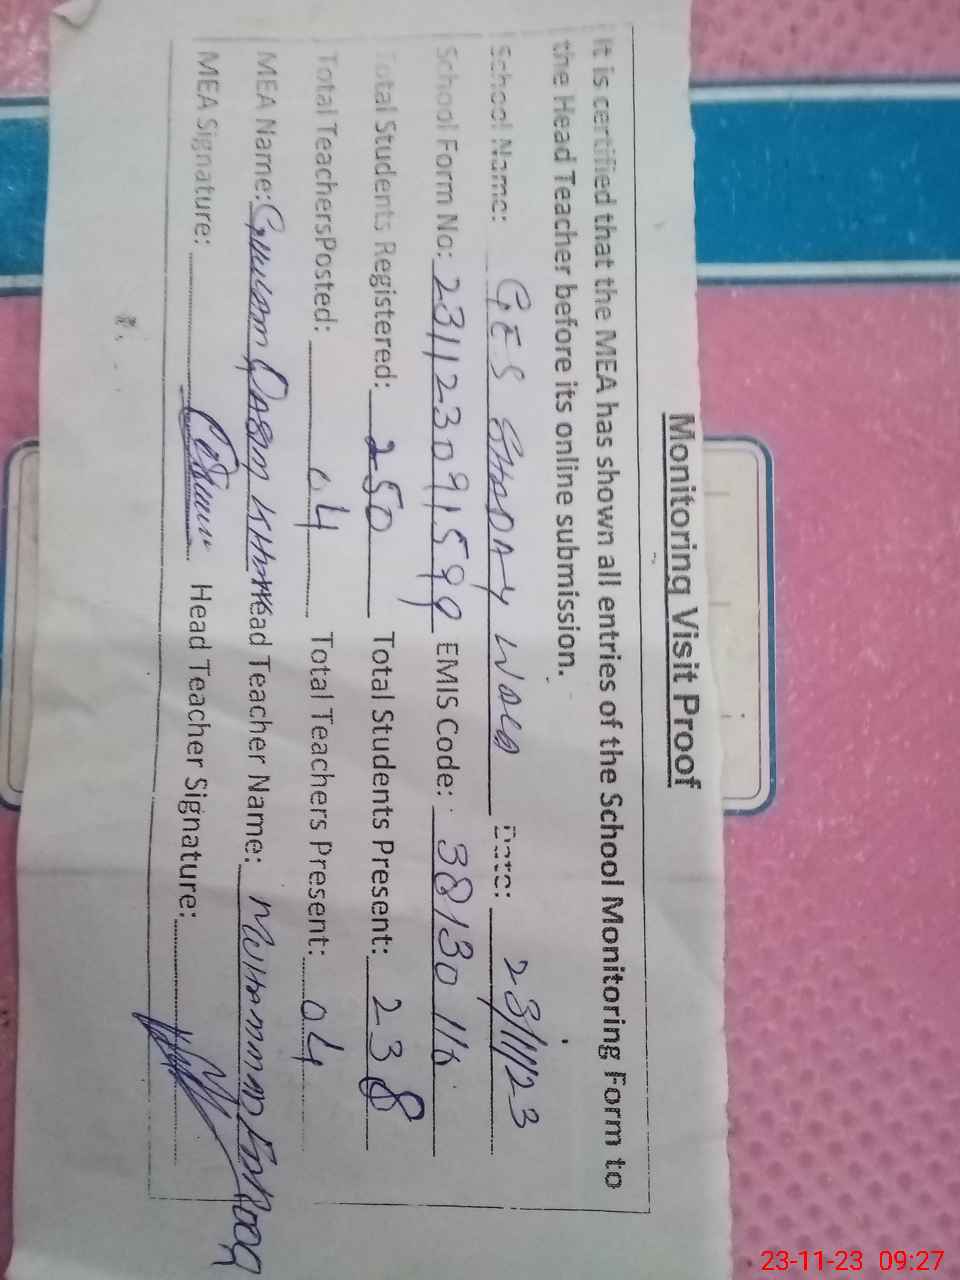 Monitoring Visit Proof
It is certified that the MEA has shown all entries of the School Monitoring Form to
the Head Teacher before its online submission.
School Name: GES SHADAY WALA Date: 23/11/23
School Form No: 231123091599 EMIS Code: 38130116
Total Students Registered: 250 Total Students Present: 238
Total TeachersPosted: 04 Total Teachers Present: 04
MEA Name: Ghulam Qasim Khan Head Teacher Name: Muhammad Farooq
MEA Signature: Head Teacher Signature:
23-11-23 09:27